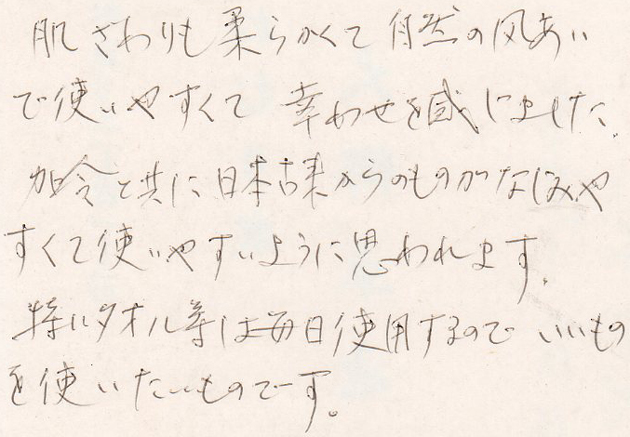 肌ざわりも柔らかくて自然の風あい
で使いやすくて 幸わせを感じました。
加令と共に日本古来からのものがなじみや
すくて使いやすいように思われます。
特にタオル等は毎日使用するので いいもの
を使いたいものです。